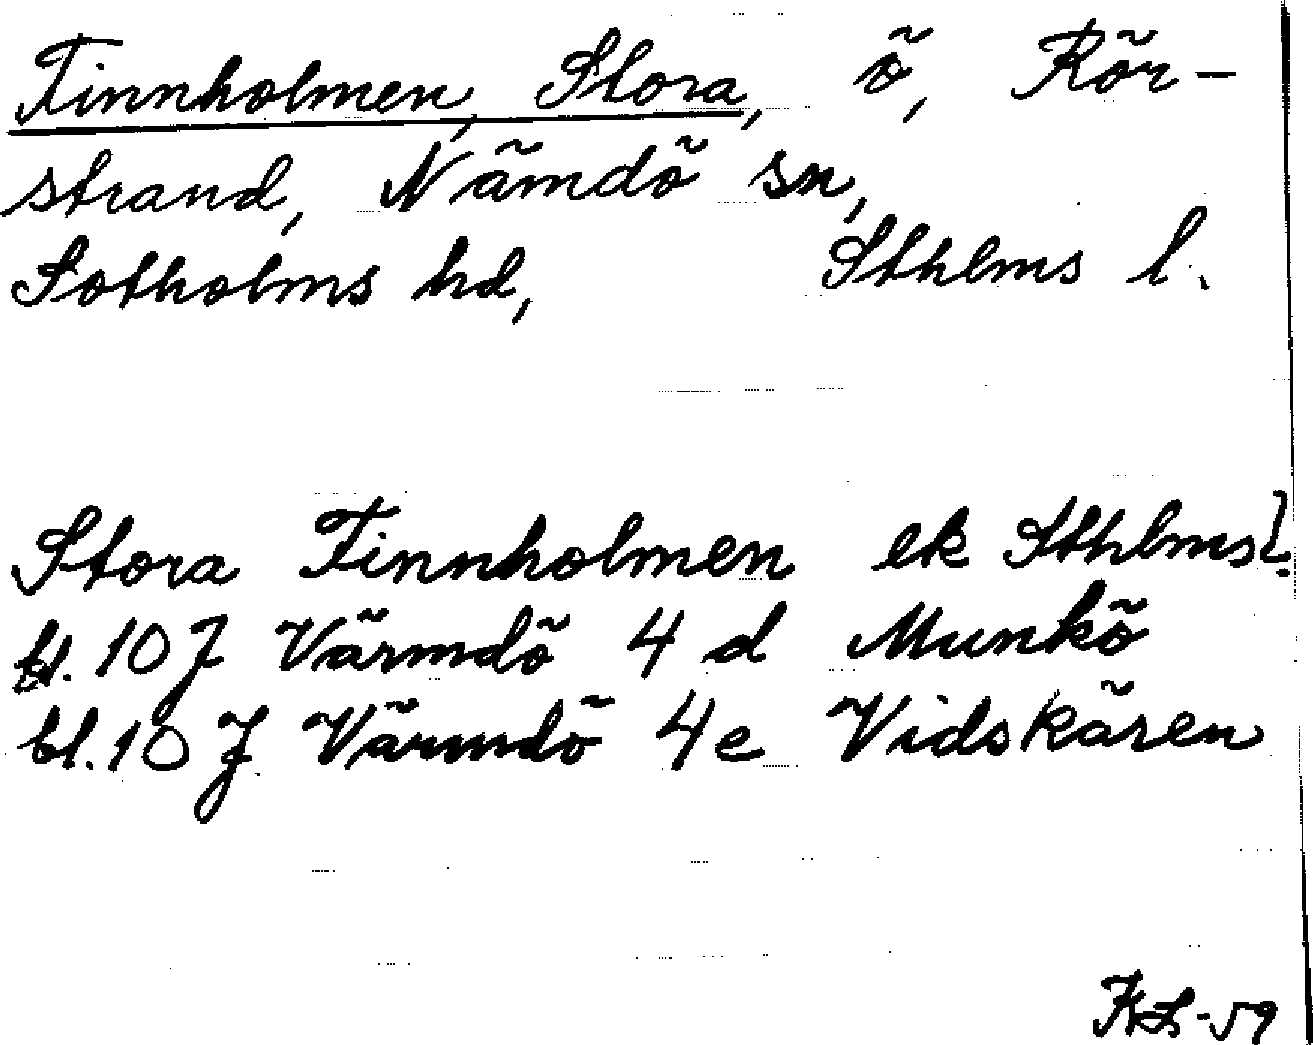 Finnholmen, Stora, ö, Rör-
strand, Nämdö sn,
Sotholms hd, Sthlms l.
Stora Finnholmen ek Sthlms l.
bl. 10 J Värmdö 4 d Munkö
bl. 10 J Värmdö 4 e Vidskären
KL-59